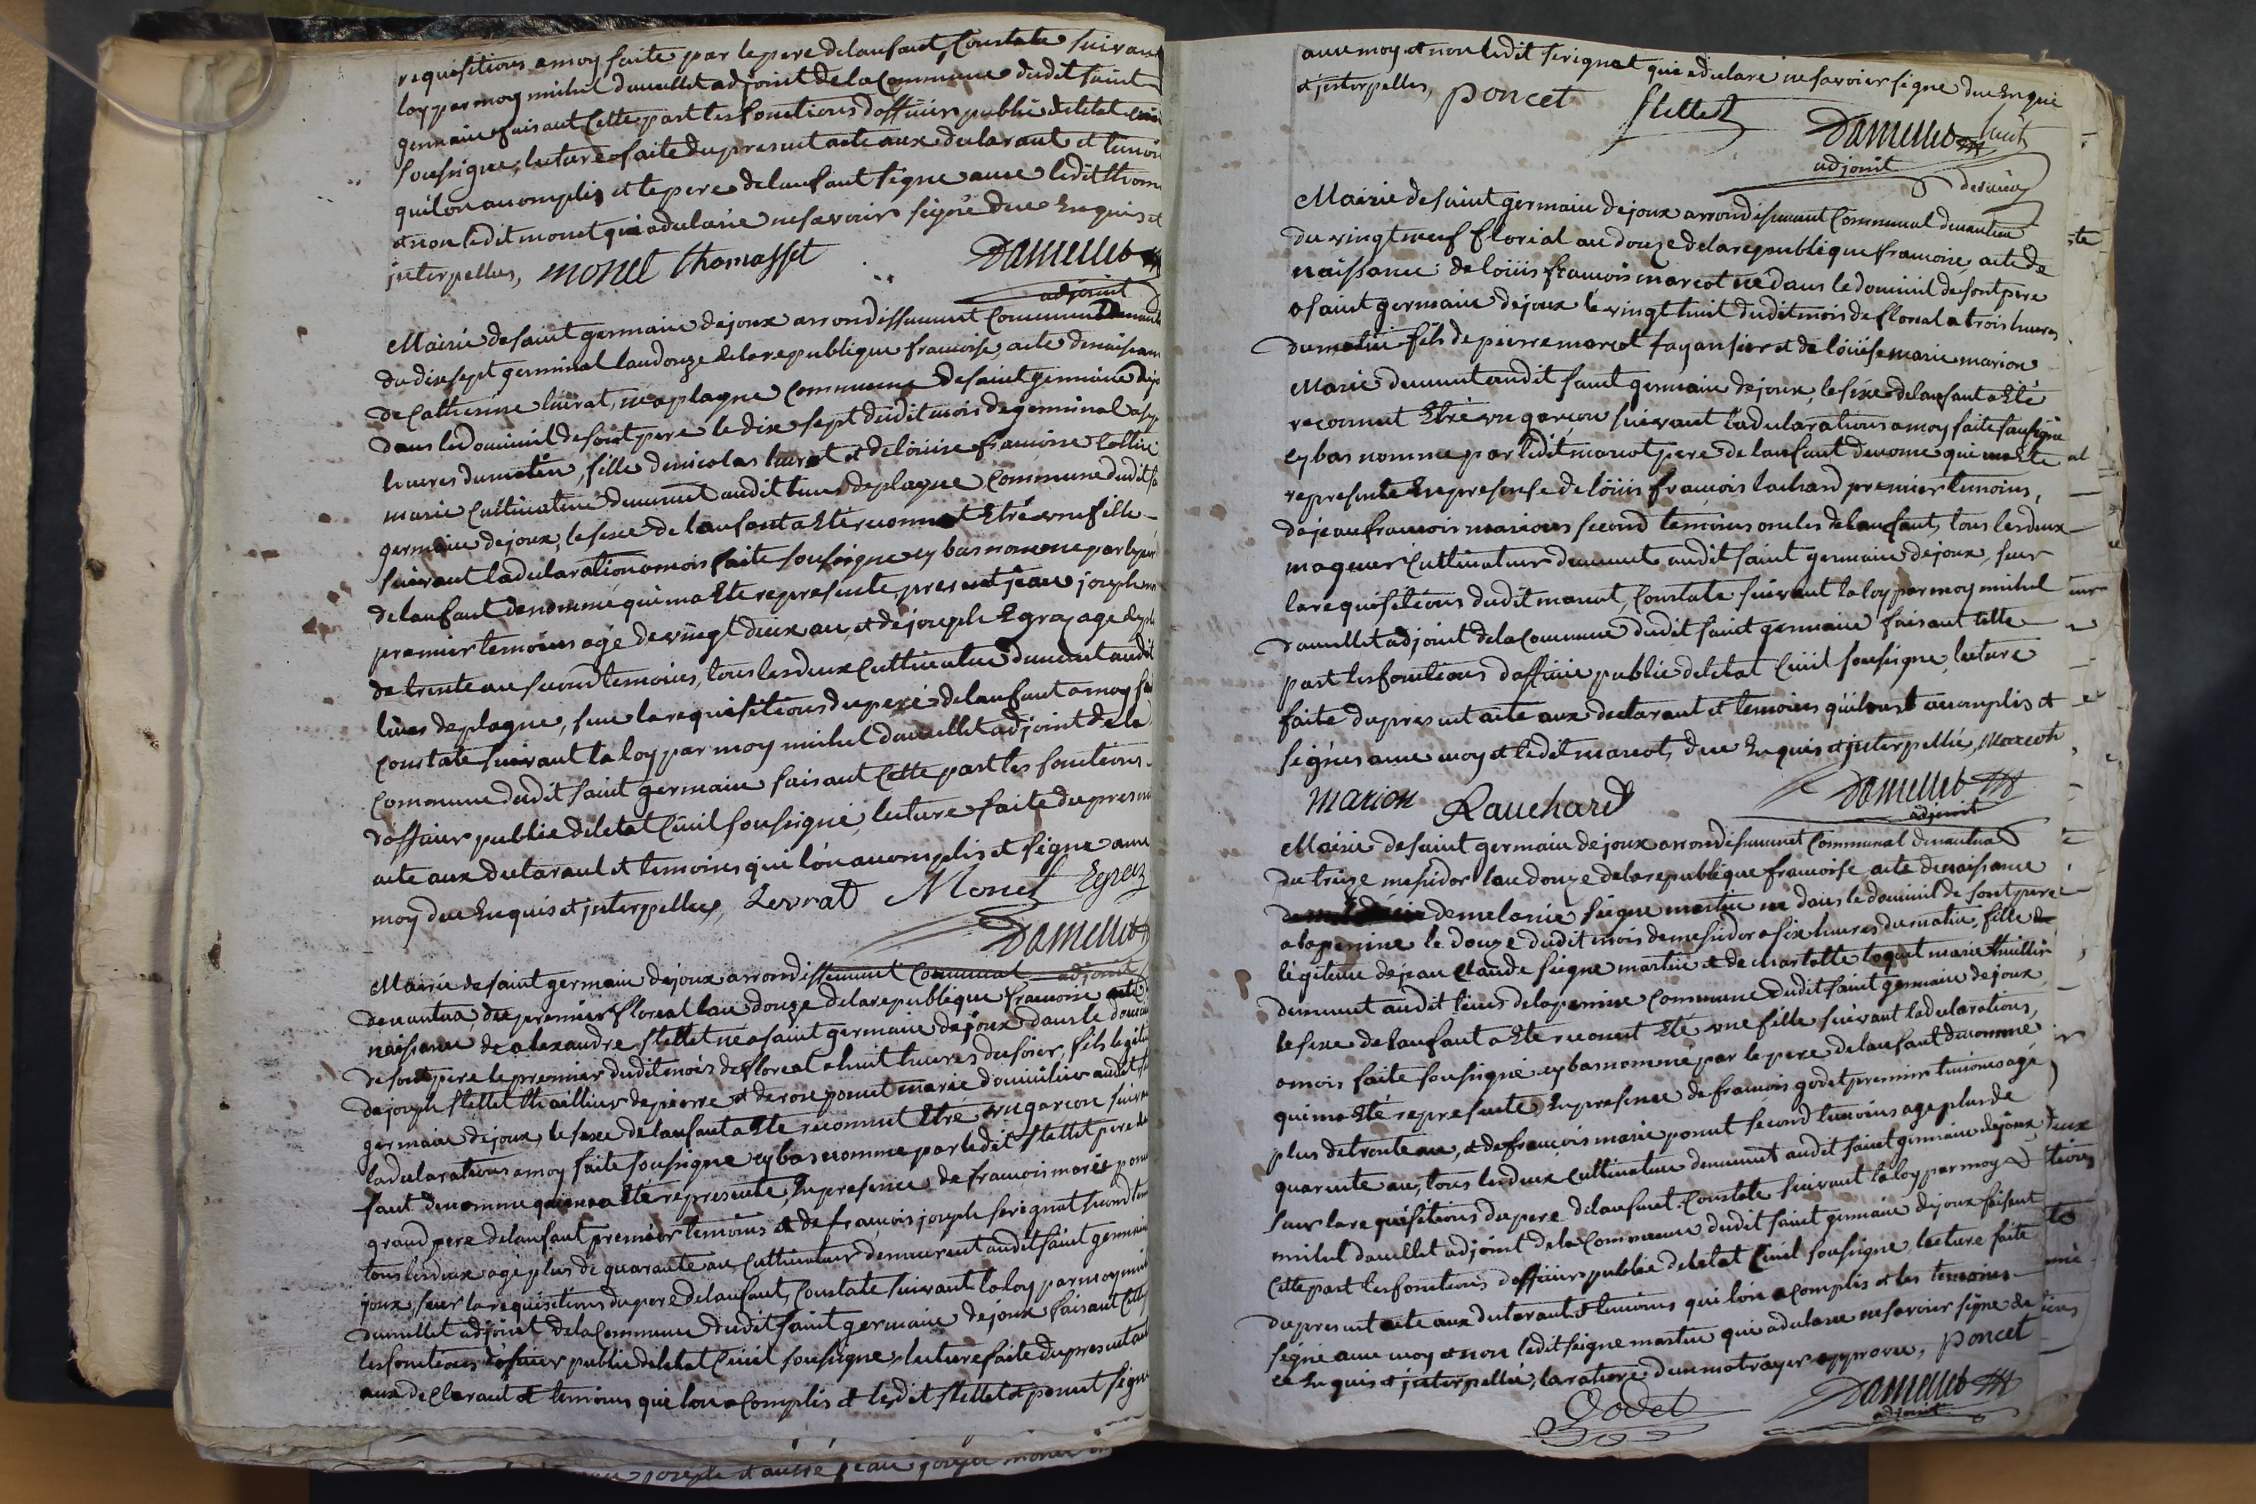 requisitions a moy faite par le pere de lanfant, Constate suivant
loy par moy michel damellet adjoint de la Commune dudit saint
germain faisant Cette part les fonctions dofficier public deletat
sousigne, lecture faite du present acte aux declarant et temoin
quilon acomplis et le pere de lanfant signe avec ledit thom
et non ledit monet qui a declarée ne savoir signé duc Enquis et
interpelles, monet thomasset Damellet
adjoint
Mairie de saint germain de joux arrondissement Communal de nantua
du dix sept germinal lan douze de la republique francoise, acte de naissance
de Catherine livrat, ne a plagne Commune de saint germain de jo
dans le Domicil de sont pere le dix sept dudit mois de germinal a
heures du matin, fille de nicolas livrat et de louise francoise
marie Cultivateur demeurent audit lieux de plagne Commune dudit
germain de joux, le sexe de lanfant a Eté reconnut Etré une fille
suivant la declaration a mois faite sousigne cy bas nomme par le pere
de lanfant denommé qui ma Ete represente present jean joseph
premier temoins agé de vingt deux an, et de joseph Egraz age de
de trente an second temoins, tous les deux Cultivateur demeurent audit
lieux de plagne, sur la requisitions du peré de lanfant a moy
Constate suivant la loy par moy michel damellet adjoint de la
Commune dudit saint germain faisant Cette part les fonctions
dofficier public deletat Civil sousigné, lecture faite du present
acte aux declarant et temoins qui lon acomplis et signe avec
moy duc Enquis et interpelles, Levrat Monet Egraz
Damellet
adjoint
Mairie de saint germain de joux arrondissement Communal
de nantua, du premier floreal lan douze de la republique francoise acte
naissance de alexandre Stellet ne a saint germain de joux dans le
de sont pere le premier dudit mois de floreal a huit heures du soir, fils
de joseph Stellet thaillieur de pierre et de rose poncet marie domicilier audit
germain de joux, le sexe de lanfant a Ete reconnut Etré un garcon suivant
la declarations a moy faite sousigne cy bas nomme par ledit Stellet pere
fant denomme qui ma Eté represente, En presence de francois marie
grand pere de lanfant premier temoins et de francois joseph serignat second
tous les deux age plus de quarante an Cultivateur demeurent audit saint germain
joux, sur la requisitions du pere de lanfant, Constate suivant la loy par moy
damellet adjoint de la Commune dudit saint germain de joux faisant Cette
les fonctions dofficier public deletat Civil sousigne, lecture faite du present
aux declarant et temoins qui lon acomplis et ledit Stellet et poncet signe
avec moy et non ledit serignat qui a declare ne savoir signe duc Enqui
et interpelles, poncet Stellet Damellet
adjoint
Mairie de saint germain de joux arrondissement Communal de nantua
du vingt neuf florial an douze de la republique francoise, acte de
naissance de loüis francois marcot né dans le domicil de sont pere
a saint germain de joux le vingt huit dudit mois de florial a trois heures
du matin fils de pierre marcot fayansier et de loüise marie marion
Marie demeurent audit saint germain de joux, le sexe de lanfant a Eté
reconnut Etré un garcon suivant la declarations a moy faite sousigne
cy bas nomme par ledit marcot pere de lanfant denome qui ma Ete
represente En presense de loüis francois lachard premier temoins,
de jean francois marion second temoins oncles de lanfant, tous les deux
mageur Cultivateur demeurent audit saint germain de joux, sur
la requisitions dudit marcot, Constate suivant la loy par moy michel
damellet adjoint de la Commune dudit saint germain faisant Cette
part les fonctions dofficie public deletat Civil sousigne, lecture
faite du present acte aux declarant et temoins quil ont acomplis et
signes avec moy et ledit marcot, duc Enquis et interpellée, Marcoh
marion Rauchard Damellet
adjoint
Mairie de saint germain de joux arrondissement Communal de nantua
du treize mesidor lan douze de la republique francoise, acte de naissance
de melanie seigne martin ne dans le domicil de sont pere
a la penine le douze dudit mois de mesidor a six heures du matin, fille de
légitime de jean claude seigne martin et de Charlotte loquet marie thuillir
demeurent audit lieux de la penine Commune dudit saint germain de joux
le sexe de lanfant a Ete reconnut Ete une fille suivant la declarations,
a mois faite sousigne, cy bas nommé par le pere de lanfant denommé
qui ma Eté represente, En presence de francois godet premier temoins agé
plus de trente an, et de francois marie poncet second temoins age plus de
quarente an, tous les deux Cultivateur demeurent audit saint germain de joux,
sur la requisitions du pere de lanfant. Constate suivant la loy par moy
michel damellet adjoint de la Commune dudit saint germain de joux faisant
Cette part les fonctions dofficier public deletat Civil sousigne, lecture faite
du present acte aux declarant et temoins qui lon acomplis et les temoins
signé avec moy et non ledit seigne martin qui a declare ne savoir signe de
ce Enquis et interpellée, la rature dun mot rayer approvu, poncet
Godet Damellet
adjoint